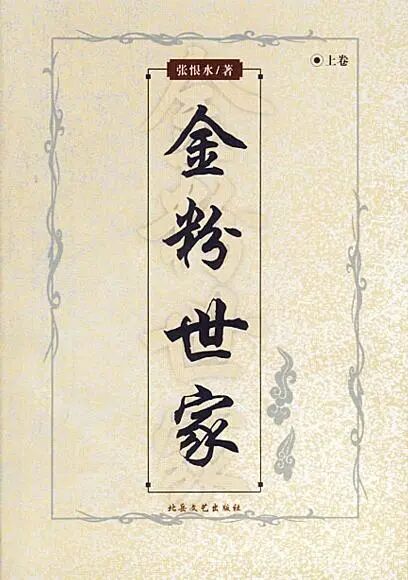 上卷
张恨水/著
金粉世家
北岳文艺出版社